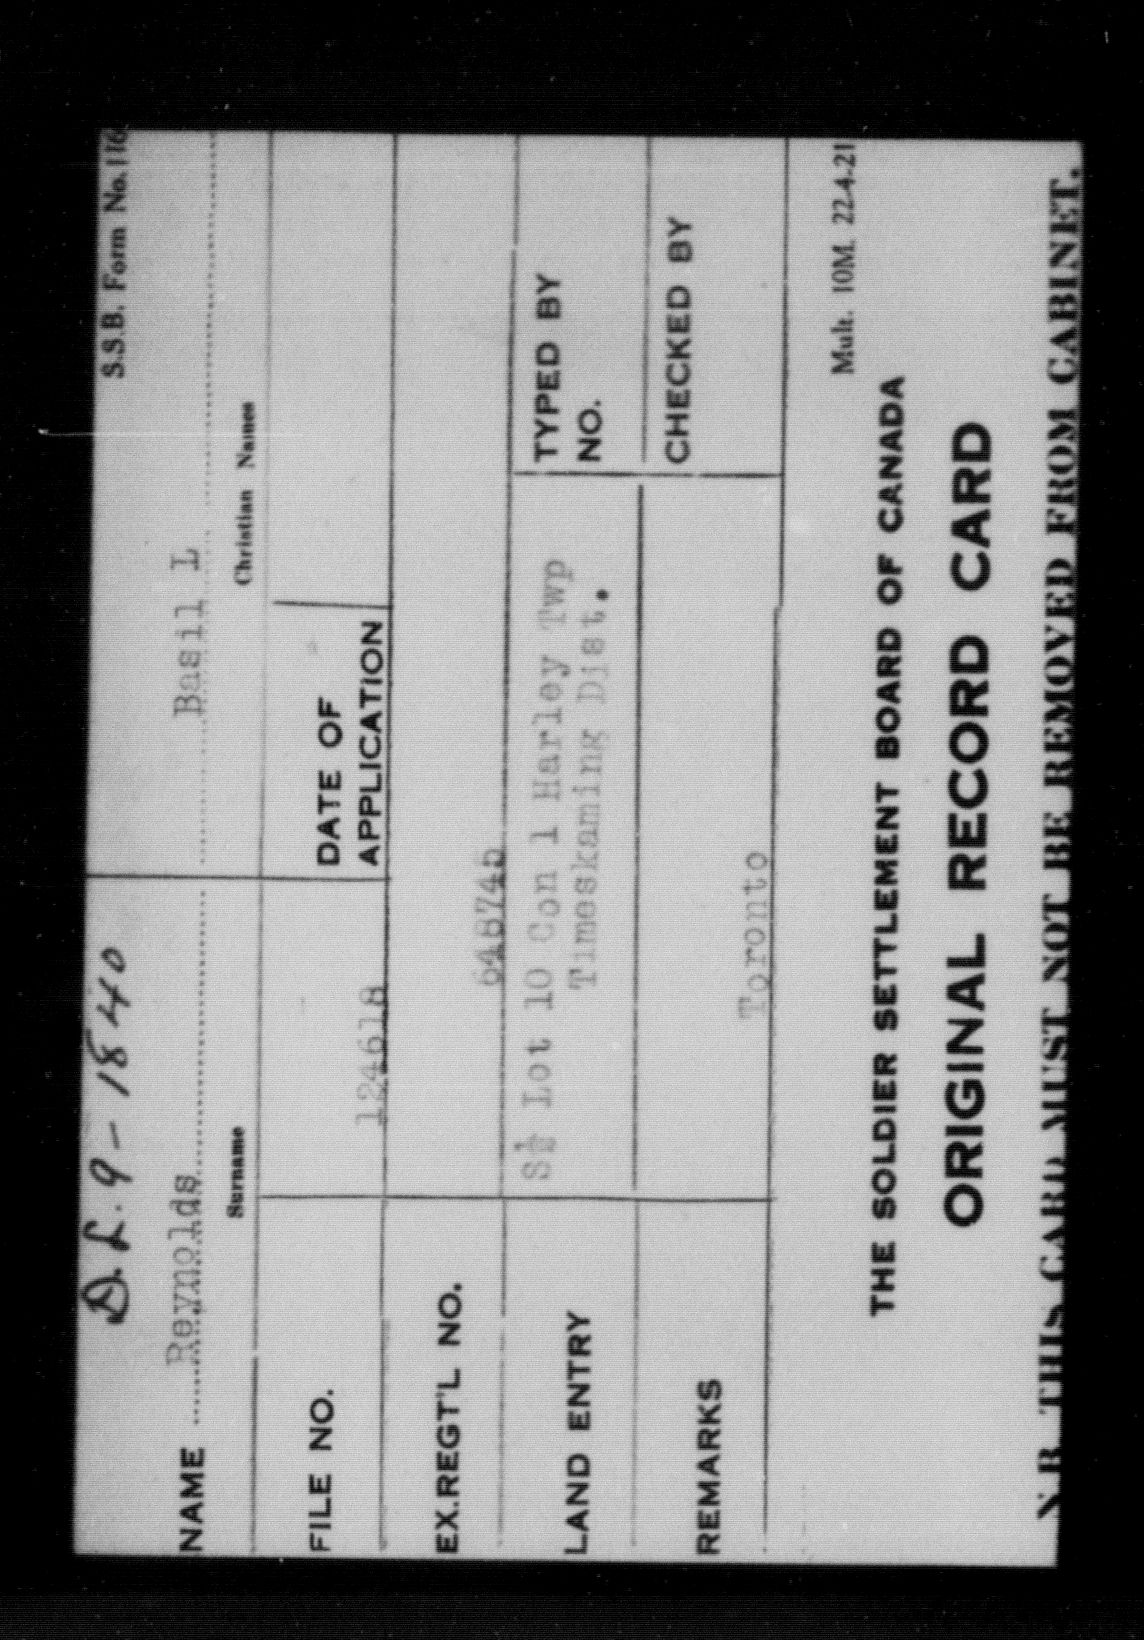 D.L. 9-1840
S.S.B. Form No. 116
NAME Reynolds Basil L
Surname Christian Names
FILE NO. 124618 DATE OF APPLICATION
EX.REGT'L NO. 648745
LAND ENTRY S½ Lot 10 Con 1 Harley Twp
Timoskaming Dist.
TYPED BY
NO.
CHECKED BY
REMARKS Toronto
Mult. 10M. 22-4-21
THE SOLDIER SETTLEMENT BOARD OF CANADA
ORIGINAL RECORD CARD
N.B. THIS CARD MUST NOT BE REMOVED FROM CABINET.